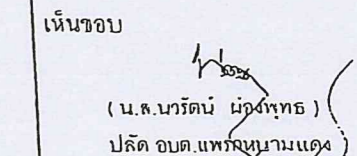 เห็นชอบ
( น.ส.นวรัตน์ ผ่องพุทธ )
ปลัด อบต.แพรกหนามแดง